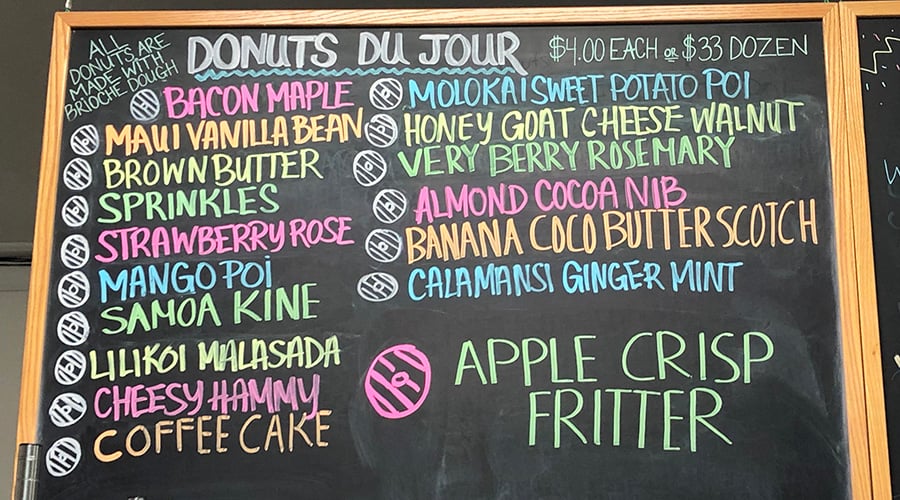 ALL
DONUTS ARE
MADE WITH
BRIOCHE DOUGH
DONUTS DU JOUR
$4.00 EACH OR $33 DOZEN
BACON MAPLE
MAUI VANILLA BEAN
BROWN BUTTER
SPRINKLES
STRAWBERRY ROSE
MANGO POI
SAMOA KINE
LILIKOI MALASADA
CHEESY HAMMY
COFFEE CAKE
MOLOKAI SWEET POTATO POI
HONEY GOAT CHEESE WALNUT
VERY BERRY ROSEMARY
ALMOND COCOA NIB
BANANA COCO BUTTERSCOTCH
CALAMANSI GINGER MINT
APPLE CRISP
FRITTER